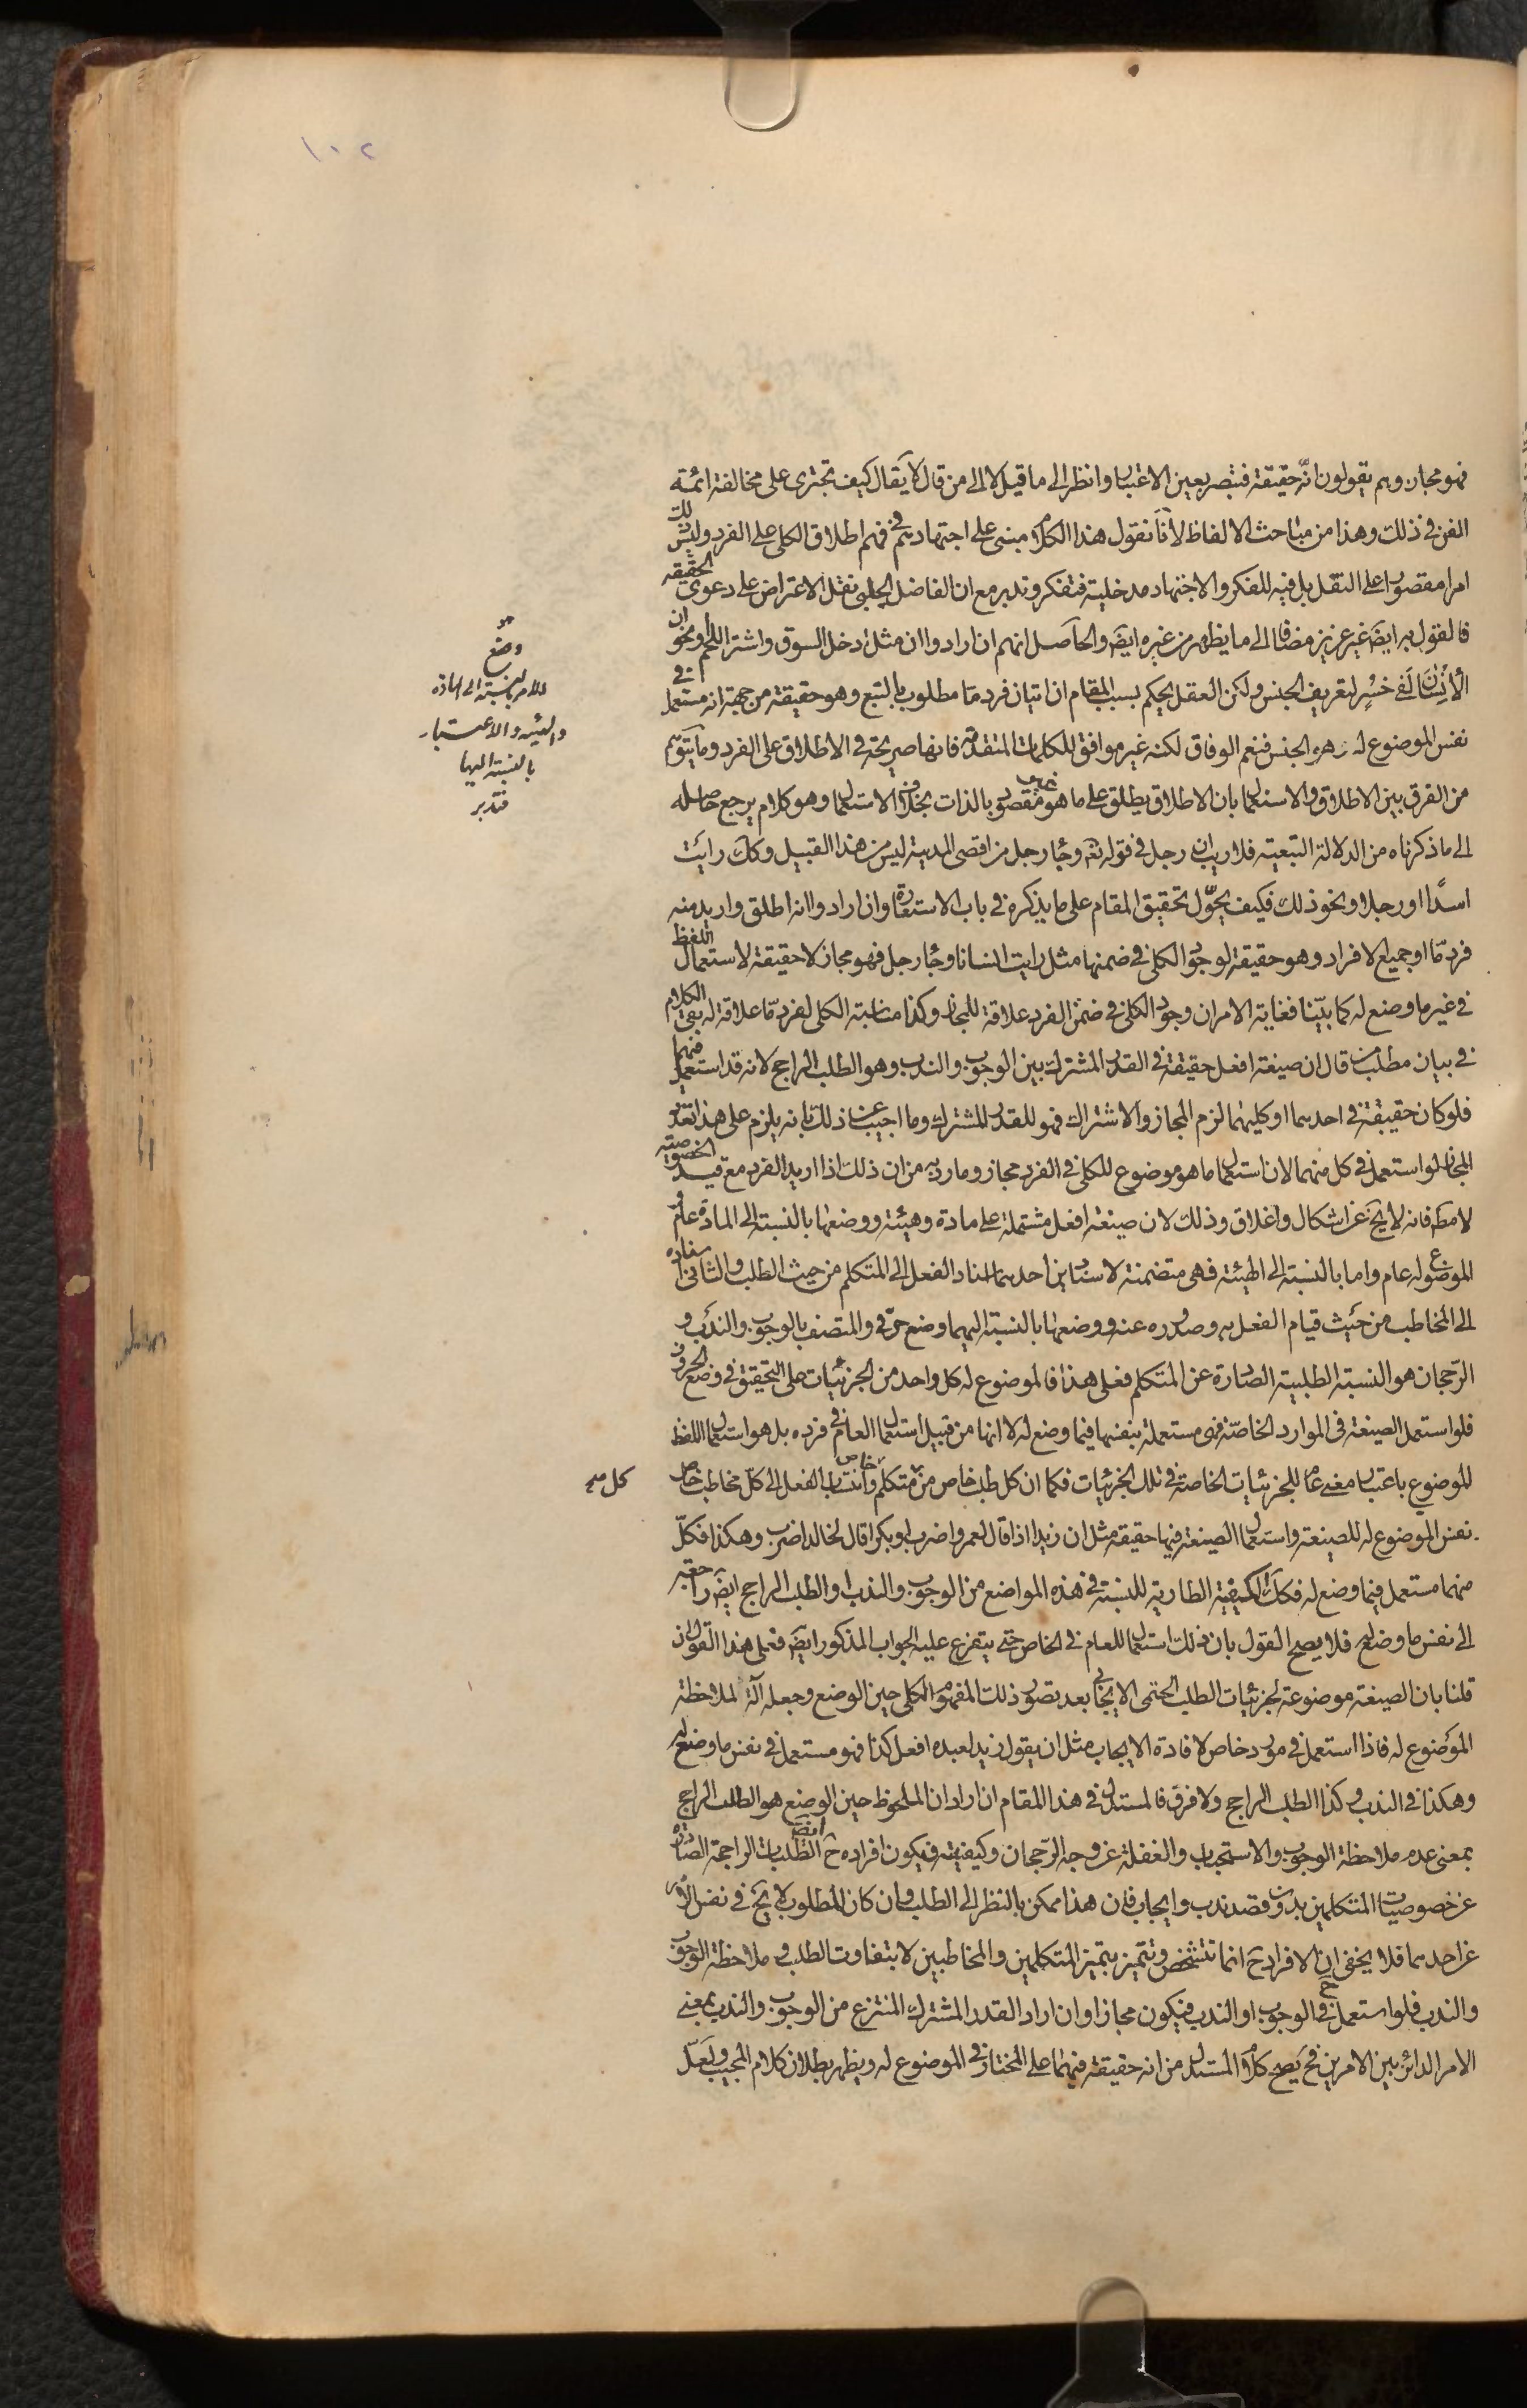 ١٠٢
فهو مجاز وهم يقولون انّه حقيقة فتبصر بعين الاعتبار وانظر الى ما قيل لا الى من قال لا يقال كيف تجترى على مخالفة ائمة
الفن فى ذلك وهذا من مباحث الالفاظ لأنّا نقول هذا الكلام مبنى على اجتهادهم فى فهم اطلاق الكلى على الفرد وليس ذلك
امرا مقصورا على النقل بل فيه للفكر والاجتهاد مدخلية فتفكر وتدبر مع ان الفاضل الچلبى نقل الاعتراض على دعوى الحقيقه
فالقول به ايضا غير عزيز مضافا الى ما يظهر من غيره ايضا والحاصل انهم ان ارادوا ان مثل ادخل السوق واشتر اللحم او نحو ان
الأنسان لفى خسر لتعريف الجنس ولكن العقل يحكم بسبب المقام ان اتيان فرد مّا مطلوب بالتبع وهو حقيقة من جهة انه مستعمل فى
نفس الموضوع له وهو الجنس فنعم الوفاق لكنه غير موافق للكلمات المتقدمة فانها صريحة فى الاطلاق على الفرد وما يتوهم
من الفرق بين الاطلاق والاستعمال بان الاطلاق يطلق على ما هو غير مقصود بالذات بخلاف الاستعمال وهو كلام يرجع حاصله
الى ما ذكرناه من الدلالة التبعية فلا ريب ان رجل فى قوله تعه وجاء رجل من اقصى المدينة ليس من هذا القبيل وكك رايت
اسدًا او رجلا ونحو ذلك فكيف يحوّل تحقيق المقام على ما يذكره فى باب الاستعارة وان ارادوا انه اطلق واريد منه
فرد مّا او جميع الافراد وهو حقيقة لوجود الكلى فى ضمنها مثل رايت انسانا وجاء رجل فهو مجاز لا حقيقة لاستعمال اللفظ
فى غير ما وضع له كما بيّنا فغاية الامر ان وجود الكلى فى ضمن الفرد علاقة للمجاز وكذا مناسبة الكلى لفرد مّا علاقة له بقى الكلام
فى بيان مطلب من قال ان صيغة افعل حقيقة فى القدر المشترك بين الوجوب والندب وهو الطلب الراجح لانه قد استعمل فيهما
فلو كان حقيقة فى احدهما او كليهما لزم المجاز والاشتراك فهو للقدر المشترك وما اجيب عن ذلك بانه يلزم على هذا تعدد
المجاز لو استعمل فى كل منهما لان استعمال ما هو موضوع للكلى فى الفرد مجاز وما رد به من ان ذلك اذا اريد الفرد مع قيد الخصوصيه
لا مطه فانه لا يخ عن اشكال واغلاق وذلك لان صيغة افعل مشتملة على مادة وهيئة ووضعها بالنسبة الى المادة عام و
الموضوع له عام واما بالنسبة الى الهيئة فهى متضمنة لاسنادين احدهما اسناد الفعل الى المتكلم من حيث الطلب والثانى اسناده
الى المخاطب من حيث قيام الفعل به وصدوره عنه ووضعها بالنسبة اليهما وضع حرفى والمتصف بالوجوب والندب و
الرّجحان هو النسبة الطلبية الصادرة عن المتكلم فعلى هذا فالموضوع له كل واحد من الجزئيات على التحقيق فى وضع الحروف
فلو استعمل الصيغة فى الموارد الخاصّة فهى مستعملة بنفسها فيما وضع له لا انها من قبيل استعمال العام فى فرده بل هو استعمال اللفظ
الموضوع باعتبار معنى عام للجزئيات الخاصة فى تلك الجزئيات فكما ان كل طلب خاص من متكلم خاص وانتساب الفعل الى كلّ مخاطب خاص
نفس الموضوع له للصيغة واستعمال الصيغة فيها حقيقة مثل ان زيدا اذا قال لعمرو اضرب او بكرا قال لخالد اضرب وهكذا فكلّ
منهما مستعمل فيما وضع له فكك الكيفية الطارية للنسبة فى هذه المواضع من الوجوب والندب والطلب الراجح ايضا راجعة
الى نفس ما وضع له فلا يصح القول بان ذلك استعمال للعام فى الخاص حتى يتفرع عليه الجواب المذكور ايضا فعلى هذا القول ان
قلنا بان الصيغة موضوعة لجزئيات الطلب الحتمى الايجابى بعد تصور ذلك المفهوم الكلى حين الوضع وجعله آلة لملاحظة
الموضوع له فاذا استعمل فى مورد خاص لافادة الايجاب مثل ان يقول زيد لعبده افعل كذا فهو مستعمل فى نفس ما وضع له
وهكذا فى الندب وكذا الطلب الراجح ولا فرق فالمستدل فى هذا المقام ان اراد ان الملحوظ حين الوضع هو الطلب الراجح
بمعنى عدم ملاحظة الوجوب والاستحباب والغفلة عن وجه الرّجحان وكيفيته فيكون افراده ح ايضا الطلبات الراجحة الصادرة
عن خصوصيات المتكلمين بدون قصد ندب وايجاب فان هذا ممكن بالنظر الى الطلب وان كان المطلوب لا يخ فى نفس الامر
عن احدهما فلا يخفى ان الافراد ح انما تتشخص وتتميز بتميز المتكلمين والمخاطبين لا بتفاوت الطلب و ملاحظة الوجوب
والندب فلو استعمل ح فى الوجوب او الندب فيكون مجازا وان اراد القدر المشترك المنتزع من الوجوب والندب بمعنى
الامر الدائر بين الامرين فح يصح كلام المستدل من انه حقيقة فيهما على المختار فى الموضوع له ويظهر بطلان كلام المجيب ولعلّ
وضع
الامر بالنسبة الى المادة
والهيئه والاعتبار
بالنسبة اليها
فتدبر
كل صح